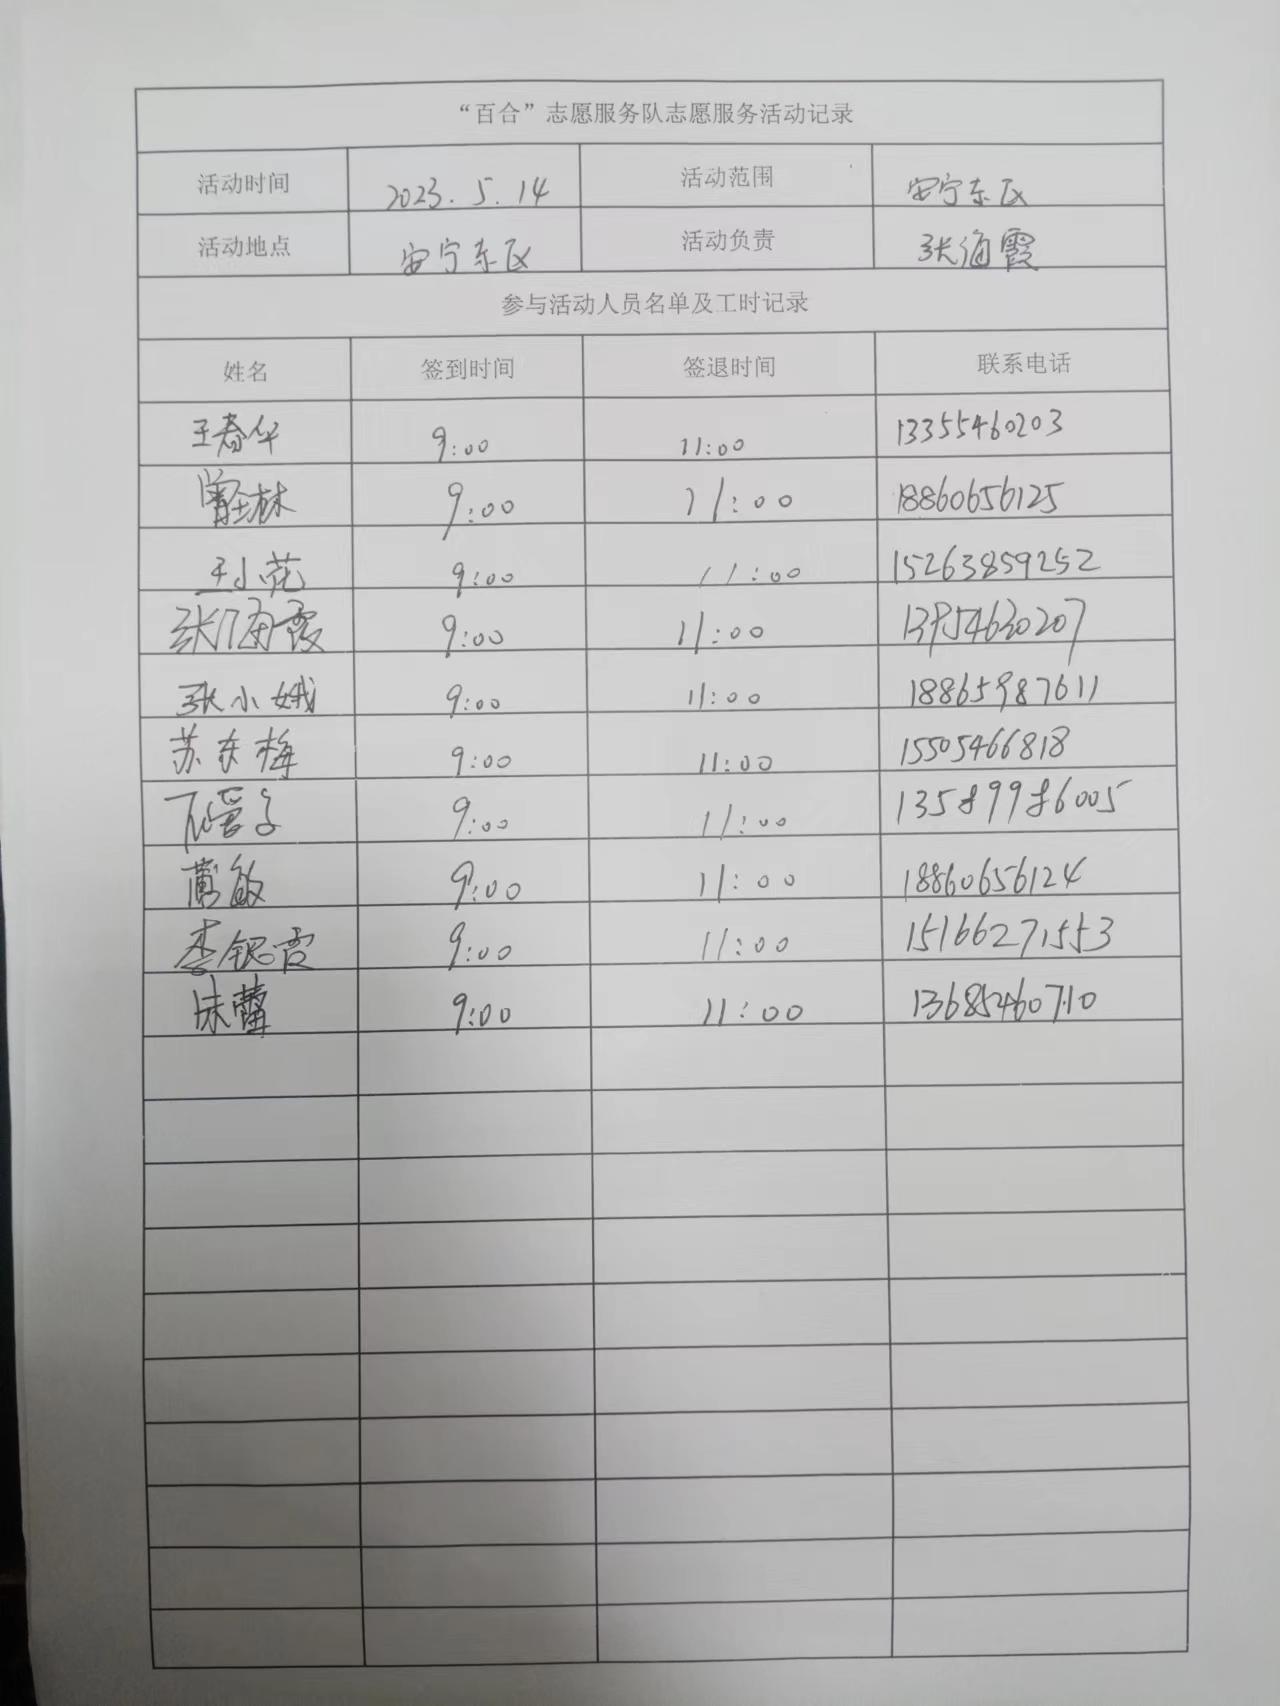 “百合”志愿服务队志愿服务活动记录
活动时间 2023.5.14 活动范围 安宁东区
活动地点 安宁东区 活动负责 张海霞
参与活动人员名单及工时记录
姓名 签到时间 签退时间 联系电话
王春华 9:00 11:00 13355460203
9:00 11:00 18860656125
王小花 9:00 11:00 15263859252
张海霞 9:00 11:00 13954630207
张小娥 9:00 11:00 18865987611
苏东梅 9:00 11:00 15505466818
9:00 11:00 13589986005
9:00 11:00 18860656124
李银霞 9:00 11:00 15166271553
朱蕾 9:00 11:00 13685460710